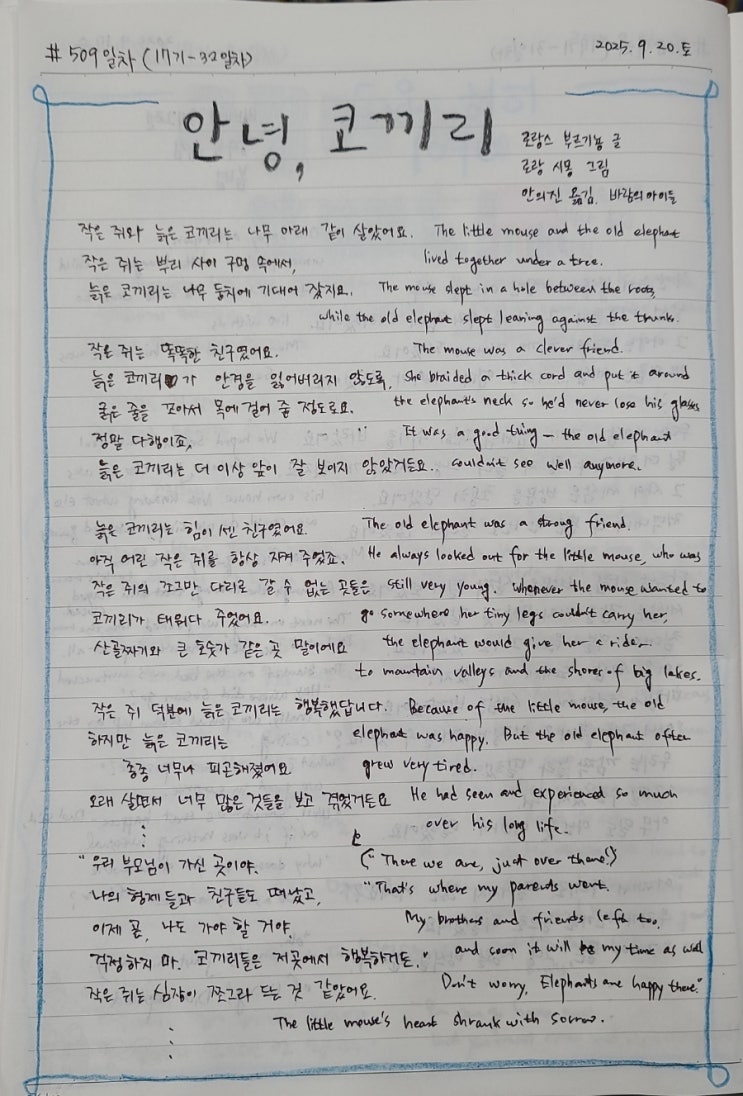 #509일차 (17기-32일차)
2025. 9. 20. 토
안녕, 코끼리
로랑스 부르기뇽 글
로랑 시몽 그림
안의진 옮김, 바람의아이들
작은 쥐와 늙은 코끼리는 나무 아래 같이 살았어요. The little mouse and the old elephant
작은 쥐는 뿌리 사이 구멍 속에서, lived together under a tree.
늙은 코끼리는 나무 둥치에 기대어 잤지요. The mouse slept in a hole between the roots,
while the old elephant slept leaning against the trunk.
작은 쥐는 똑똑한 친구였어요. The mouse was a clever friend.
늙은 코끼리가 안경을 잃어버리지 않도록, She braided a thick cord and put it around
굵은 줄을 꼬아서 목에 걸어 줄 정도로요. the elephant's neck so he'd never lose his glasses
정말 다행이죠, It was a good thing - the old elephant
늙은 코끼리는 더 이상 앞이 잘 보이지 않았거든요.. couldn't see well anymore.
늙은 코끼리는 힘이 센 친구였어요. The old elephant was a strong friend.
아직 어린 작은 쥐를 항상 지켜 주었죠. He always looked out for the little mouse, who was
작은 쥐의 쪼그만 다리로 갈 수 없는 곳들은 still very young. Whenever the mouse wanted to
코끼리가 태워다 주었어요. go somewhere her tiny legs couldn't carry her,
산골짜기와 큰 호숫가 같은 곳 말이에요 the elephant would give her a ride-
to mountain valleys and the shores of big lakes.
작은 쥐 덕분에 늙은 코끼리는 행복했답니다. Because of the little mouse, the old
하지만 늙은 코끼리는 elephant was happy. But the old elephant often
종종 너무나 피곤해졌어요 grew very tired.
오래 살면서 너무 많은 것들을 보고 겪었거든요 He had seen and experienced so much
over his long life.
"우리 부모님이 가신 곳이야. ("There we are, just over there!)
나의 형제들과 친구들도 떠났고, "That's where my parents went.
이제 곧, 나도 가야 할 거야. My brothers and friends left too,
걱정하지 마. 코끼리들은 저곳에서 행복하거든." and soon it will be my time as well
작은 쥐는 심장이 쪼그라 드는 것 같았어요. Don't worry, Elephants are happy there."
The little mouse's heart shrank with sorrow.